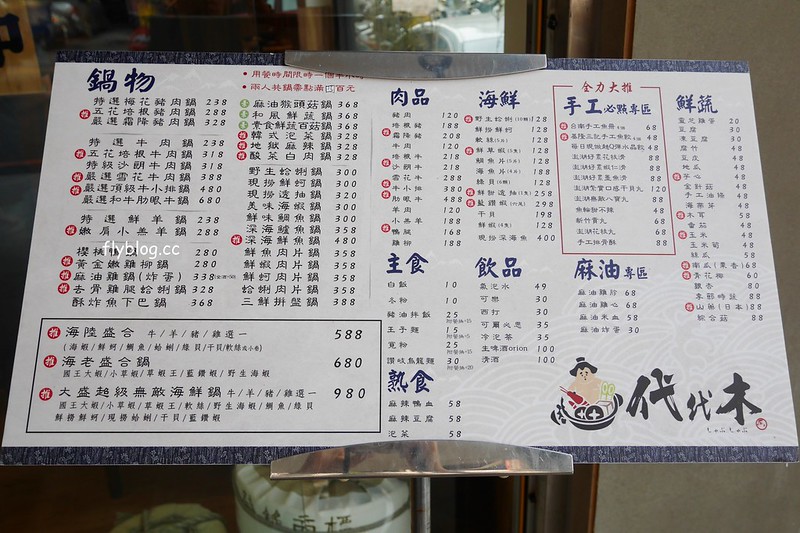 鍋物
特選梅花豬肉鍋 238
五花培根豬肉鍋 288
嚴選霜降豬肉鍋 328
特選牛肉鍋 238
五花培根牛肉鍋 318
特級沙朗牛肉鍋 318
嚴選雪花牛肉鍋 388
嚴選頂級牛小排鍋 480
嚴選和牛肋眼牛鍋 680
特選鮮羊鍋 238
嫩肩小羔羊鍋 288
280
黃金嫩雞柳鍋 280
麻油雞鍋(炸蛋) 338
去骨雞腿蛤蜊鍋 328
酥炸魚下巴鍋 368
用餐時間限時一個半小時
兩人共鍋需點滿四百元
麻油猴頭菇鍋 368
和風鮮蔬鍋 368
素食鮮蔬百菇鍋 368
韓式泡菜鍋 328
地獄麻辣鍋 368
酸菜白肉鍋 328
野生蛤蜊鍋 300
現撈鮮蚵鍋 300
現撈透抽鍋 320
美味海蝦鍋 300
鮮味鯛魚鍋 300
深海鱸魚鍋 350
深海鮮魚鍋 480
鮮魚肉片鍋 358
鮮蝦肉片鍋 358
鮮蚵肉片鍋 358
蛤蜊肉片鍋 358
三鮮拼盤鍋 388
海陸盛合 牛/羊/豬/雞選一 588
(海蝦/鮮蚵/鯛魚/蛤蜊/綠貝/干貝/軟絲或小卷)
海老盛合鍋 680
國王大蝦/小草蝦/草蝦王/藍鑽蝦/野生海蝦
大盛超級無敵海鮮鍋 牛/羊/豬/雞選一 980
國王大蝦/小草蝦/草蝦王/軟絲/野生海蝦/鯛魚/綠貝
鮮撈鮮蚵/現撈蛤蜊/干貝/藍鑽蝦
肉品
豬肉 120
培根豬 188
霜降豬 208
牛肉 120
培根牛 218
沙朗牛 218
雪花牛 288
牛小排 380
肋眼牛 480
羊肉 120
小羔羊 188
鴨腿 188
雞柳 188
主食
白飯 10
冬粉 10
豬油拌飯 25
王子麵 15
寬粉 25
讚岐烏龍麵 30
熟食
麻辣鴨血 58
麻辣豆腐 58
泡菜 58
海鮮
野生蛤蜊 128
鮮撈鮮蚵 128
軟絲 128
鮮草蝦 128
鯛魚片 128
海蝦 128
綠貝 128
鮮撈透抽 258
藍鑽蝦 298
干貝 198
鮮蝦 128
現撈深海魚 400
飲品
氣泡水 49
可樂 30
西打 30
可爾必思 35
冷泡茶 35
生啤酒orion 100
清酒 100
全力大推
手工必點專區
台南手工魚冊 68
基隆三記手工魚餃 48
每日現做趙Q彈水晶餃 48
澎湖好棗花枝漿 88
澎湖好棗蝦漿 88
澎湖好棗墨魚漿 88
澎湖紫菜口感干貝丸 120
澎湖無敵八寶丸 88
魚麵粉不辣 48
新竹貢丸 68
澎湖花枝丸 68
手工排骨酥 88
麻油專區
麻油雞胗 68
麻油雞心 68
麻油米血 58
麻油炸蛋 30
鮮蔬
臺芝雞蛋 20
豆腐 30
凍豆腐 30
腐竹 48
豆皮 48
娃娃菜 48
芋頭 48
金針菇 48
手工油條 48
海帶芽 48
木耳 58
番茄 48
玉米 48
玉米筍 48
絲瓜 58
南瓜(栗香) 68
青花椰 60
銀杏 80
季節時蔬 88
山藥(日本) 88
綜合菇 88
代代木
しゃぶしゃぶ
flyblog.cc